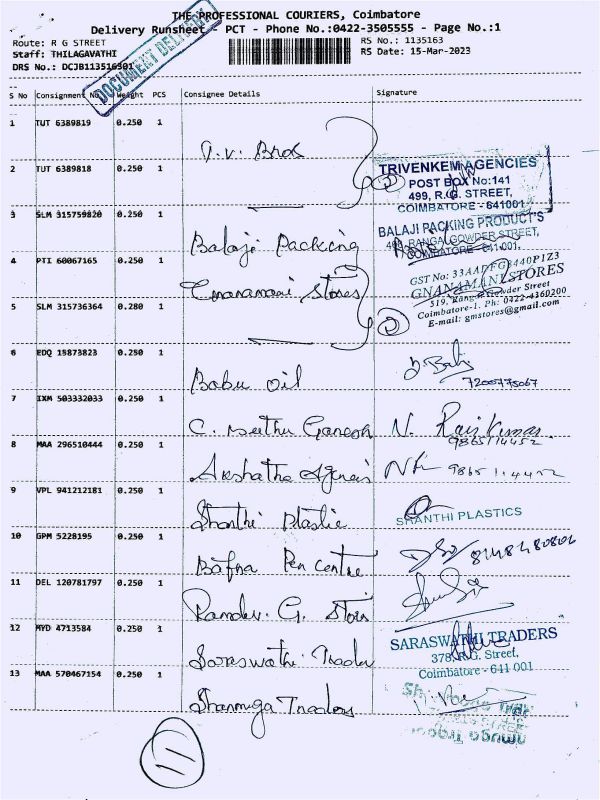 THE PROFESSIONAL COURIERS, Coimbatore
Delivery Runsheet - PCT - Phone No.:0422-3505555 - Page No.:1
Route: R G STREET
RS No.: 1135163
Staff: THILAGAVATHI
RS Date: 15-Mar-2023
DRS No.: DCJB113516301
DOCUMENT DELIVERY
S No Consignment No Weight PCS Consignee Details Signature
1 TUT 6389819 0.250 1
T.V. Bros
2 TUT 6389818 0.250 1
TRIVENKEM AGENCIES
POST BOX No:141
499, R.G. STREET,
COIMBATORE - 641001
2
3 SLM 315759820 0.250 1
Balaji Packing
BALAJI PACKING PRODUCT'S
RANGA GOWDER STREET,
COIMBATORE - 641001,
4 PTI 60067165 0.250 1
Gnanamani Stores
GNANAMANI STORES
519, Ranga Gowder Street
Coimbatore-1. Ph: 0422-4360200
E-mail: gmstores@gmail.com
5 SLM 315736364 0.280 1
2
6 EDQ 15873823 0.250 1
Babu oil
7200775067
7 IXM 503332033 0.250 1
C. Muthu Ganesh N. Raj Kumar
9865114452
8 MAA 296510444 0.250 1
Akshatha Agencies
9865114452
9 VPL 941212181 0.250 1
Shanthi Plastic
SHANTHI PLASTICS
10 GPM 5228195 0.250 1
Bafna Pen centre
11 DEL 120781797 0.250 1
Ramdev. G. Stores
12 MYD 4713584 0.250 1
Saraswathi Trader
SARASWATHI TRADERS
378, R.G. Street,
Coimbatore - 641 001
13 MAA 570467154 0.250 1
Shanmuga Traders
11